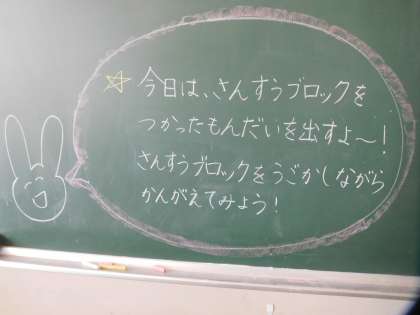 ☆ 今日は、さんすうブロックを
つかったもんだいを出すよ〜!
さんすうブロックをうごかしながら
かんがえてみよう!